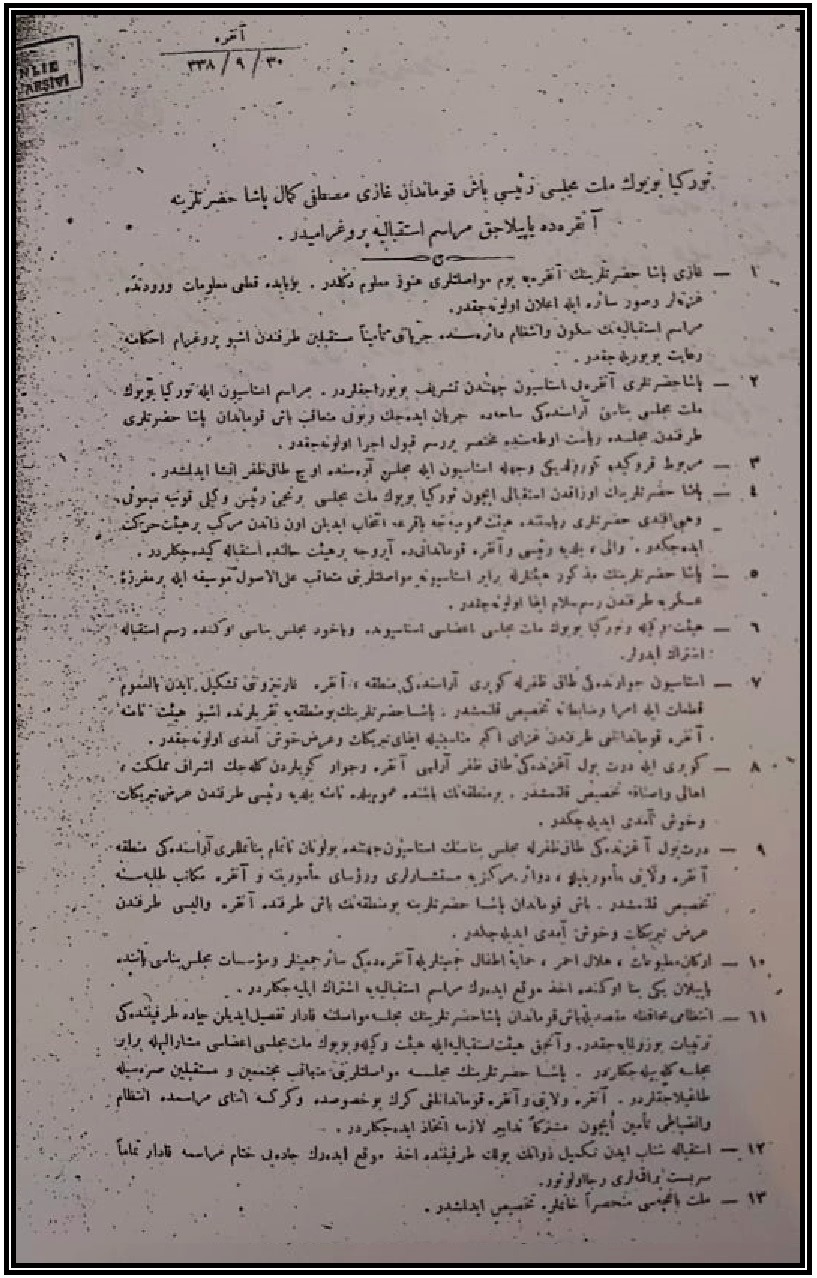 آنقره
٣٠ / ٩ / ٣٣٨
NLIK
ARŞİVİ
توركيا بويوك ملت مجلسى رئيسى باش قوماندان غازى مصطفى كمال پاشا حضرتلرينه
آنقره‌ده ياپيلاجق مراسم استقباليه پروغراميدر .
١ — غازى پاشا حضرتلرينك آنقره‌يه يوم مواصلتلرى هنوز معلوم دكلدر . بوبابده قطعى معلومات ورودنده
غزته‌لر وصور سائره ايله اعلان اولونه‌جقدر.
مراسم استقباليه‌نك سكون وانتظام دائره‌سنده جريانى تأميناً مستقبلين طرفندن اشبو پروغرام احكامنه
رعايت بويوريله‌جقدر .
٢ — پاشا حضرتلرى آنقره‌يى استاسيون جهتندن تشريف بويوراجقلردر . مراسم استاسيون ايله توركيا بويوك
ملت مجلسى بناسى آراسنده‌كى ساحه‌ده جريان ايده‌جك ونى متعاقب باش قوماندان پاشا حضرتلرى
طرفندن مجلسده رياست اوطه‌سنده مختصر بررسم قبول اجرا اولونه‌جقدر .
٣ — مربوط قروكيده كورولديكى وجهله استاسيون ايله مجلس آره‌سنده اوچ طاق ظفر انشا ايدلمشدر .
٤ — پاشا حضرتلرينك اوزاقدن استقبالى ايچون توركيا بويوك ملت مجلسى برنجى رئيس وكيلى قونيه مبعوثى
وهبى افندى حضرتلرى رياستنده هيئت عموميه‌جه باقرعه انتخاب ايديلن اون ذاتدن مركب برهيئت حركت
ايده‌جكدر . والى ، بلديه رئيسى وآنقره قوماندانى‌ده آيروجه برهيئت حالنده استقباله كيده‌جكلردر .
٥ — پاشا حضرتلرينك مذكور هيئتلرله برابر استاسيونه مواصلتلرينى متعاقب على الاصول موسيقه ايله برمفرزۀ
عسكريه طرفندن رسم سلام ايفا اولونه‌جقدر .
٦ — هيئت وكيله وتوركيا بويوك ملت مجلسى اعضاسى استاسيونده وياخود مجلس بناسى اوكنده رسم استقباله
اشتراك ايدرلر.
٧ — استاسيون جوارنده‌كى طاق ظفرله كوپرى آراسنده‌كى منطقه ، آنقره غارنيزونى تشكيل ايدن بالعموم
قطعات ايله امرا وضابطانه تخصيص قلنمشدر . پاشا حضرتلرينك بومنطقه‌يه تقربلرنده اشبو هيئت نامنه
آنقره قوماندانلغى طرفندن غزاى اكبر مناسبتيله ايفاى تبريكات وعرض خوش آمدى اولونه‌جقدر .
٨ — كوپرى ايله درت يول آغزنده‌كى طاق ظفر آراسى آنقره وجوار كويلردن كله‌جك اشراف مملكت ،
اهالى واصنافه تخصيص قلنمشدر . برمنطقه‌نك باشنده عموم بلده نامنه بلديه رئيسى طرفندن عرض تبريكات
وخوش آمدى ايديله‌جكدر .
٩ — درت يول آغزنده‌كى طاق ظفرله مجلس بناسنك استاسيون جهتنده بولونان ناتمام بنانقلرى آراسنده‌كى منطقه
آنقره ولايتى مأمورينيله ، دوائر مركزيه مستشارلرى ورؤساى مأمورينه و آنقره مكاتب طلبه‌سنه
تخصيص قلنمشدر . باش قوماندان پاشا حضرتلرينه بومنطقه‌نك باش طرفنده آنقره واليسى طرفندن
عرض تبريكات وخوش آمدى ايديله‌جكدر .
١٠ — اركان مطبوعات ، هلال احمر ، حمايۀ اطفال جمعيتلريله آنقره‌ده‌كى سائر جمعيتلر ومؤسسات مجلس بناسى ياننده
ياپيلان يكى بنا اوكنده اخذ موقع ايده‌رك مراسم استقباليه‌يه اشتراك ايليه‌جكلردر .
١١ — انتظامى محافظه مقصديله باش قوماندان پاشا حضرتلرينك مجلسه مواصلتنه قادار تفصيل ايديلن جاده طرفيننده‌كى
ترتيبات بوزولمايه‌جقدر. وآنجق هيئت استقباليه ايله هيئت وكيله وبويوك ملت مجلسى اعضاسى مشاراليهله برابر
مجلسه كله‌بيله‌جكلردر . پاشا حضرتلرينك مجلسه مواصلتلرينى متعاقب مجتمعين و مستقبلين صره‌سيله
طاغيلاجقلردر . آنقره ولايتى وآنقره قوماندانلغى كرك بوخصوصده وكركسه اثناى مراسمده انتظام
وانضباطى تأمين ايچون مشتركاً تدابير لازمه اتخاذ ايده‌جكلردر .
١٢ — استقباله شتاب ايدن تكميل ذواتك يولك طرفيننده اخذ موقع ايده‌رك جاده‌يى ختام مراسمه قادار تماماً
سربست براقه‌لرى رجا اولونور.
١٣ — ملت باغچه‌سى منحصراً خانملره تخصيص ايدلمشدر .